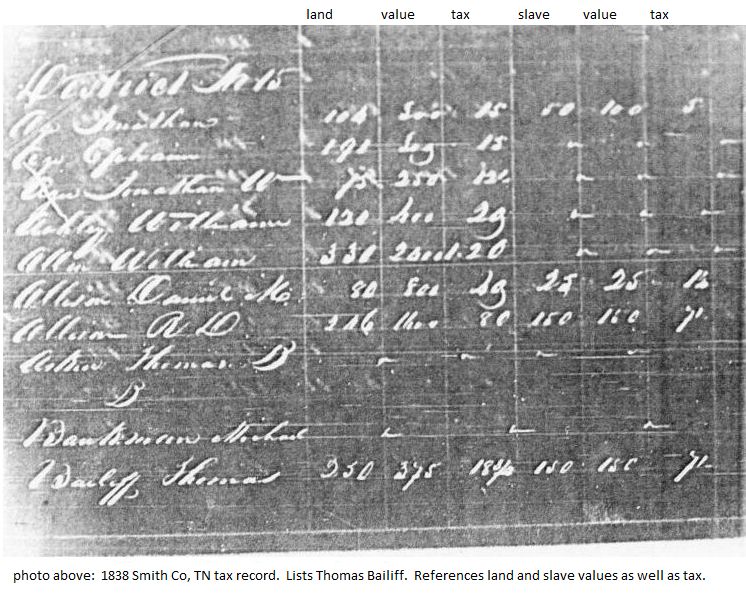 land value tax slave value tax
District No 15
Jonathan 104 300 15 50 100 5
Ephraim 191 309 15
Jonathan W 75 250 12
William 120 400 20
Allen William 330 2000 1.20
Allison Daniel M. 80 800 40 25 25
Allison R D. 226 1600 80 150 150 7
Thomas B
B
Michael
Bailiff Thomas 250 375 18¾ 150 150 7
photo above: 1838 Smith Co, TN tax record. Lists Thomas Bailiff. References land and slave values as well as tax.